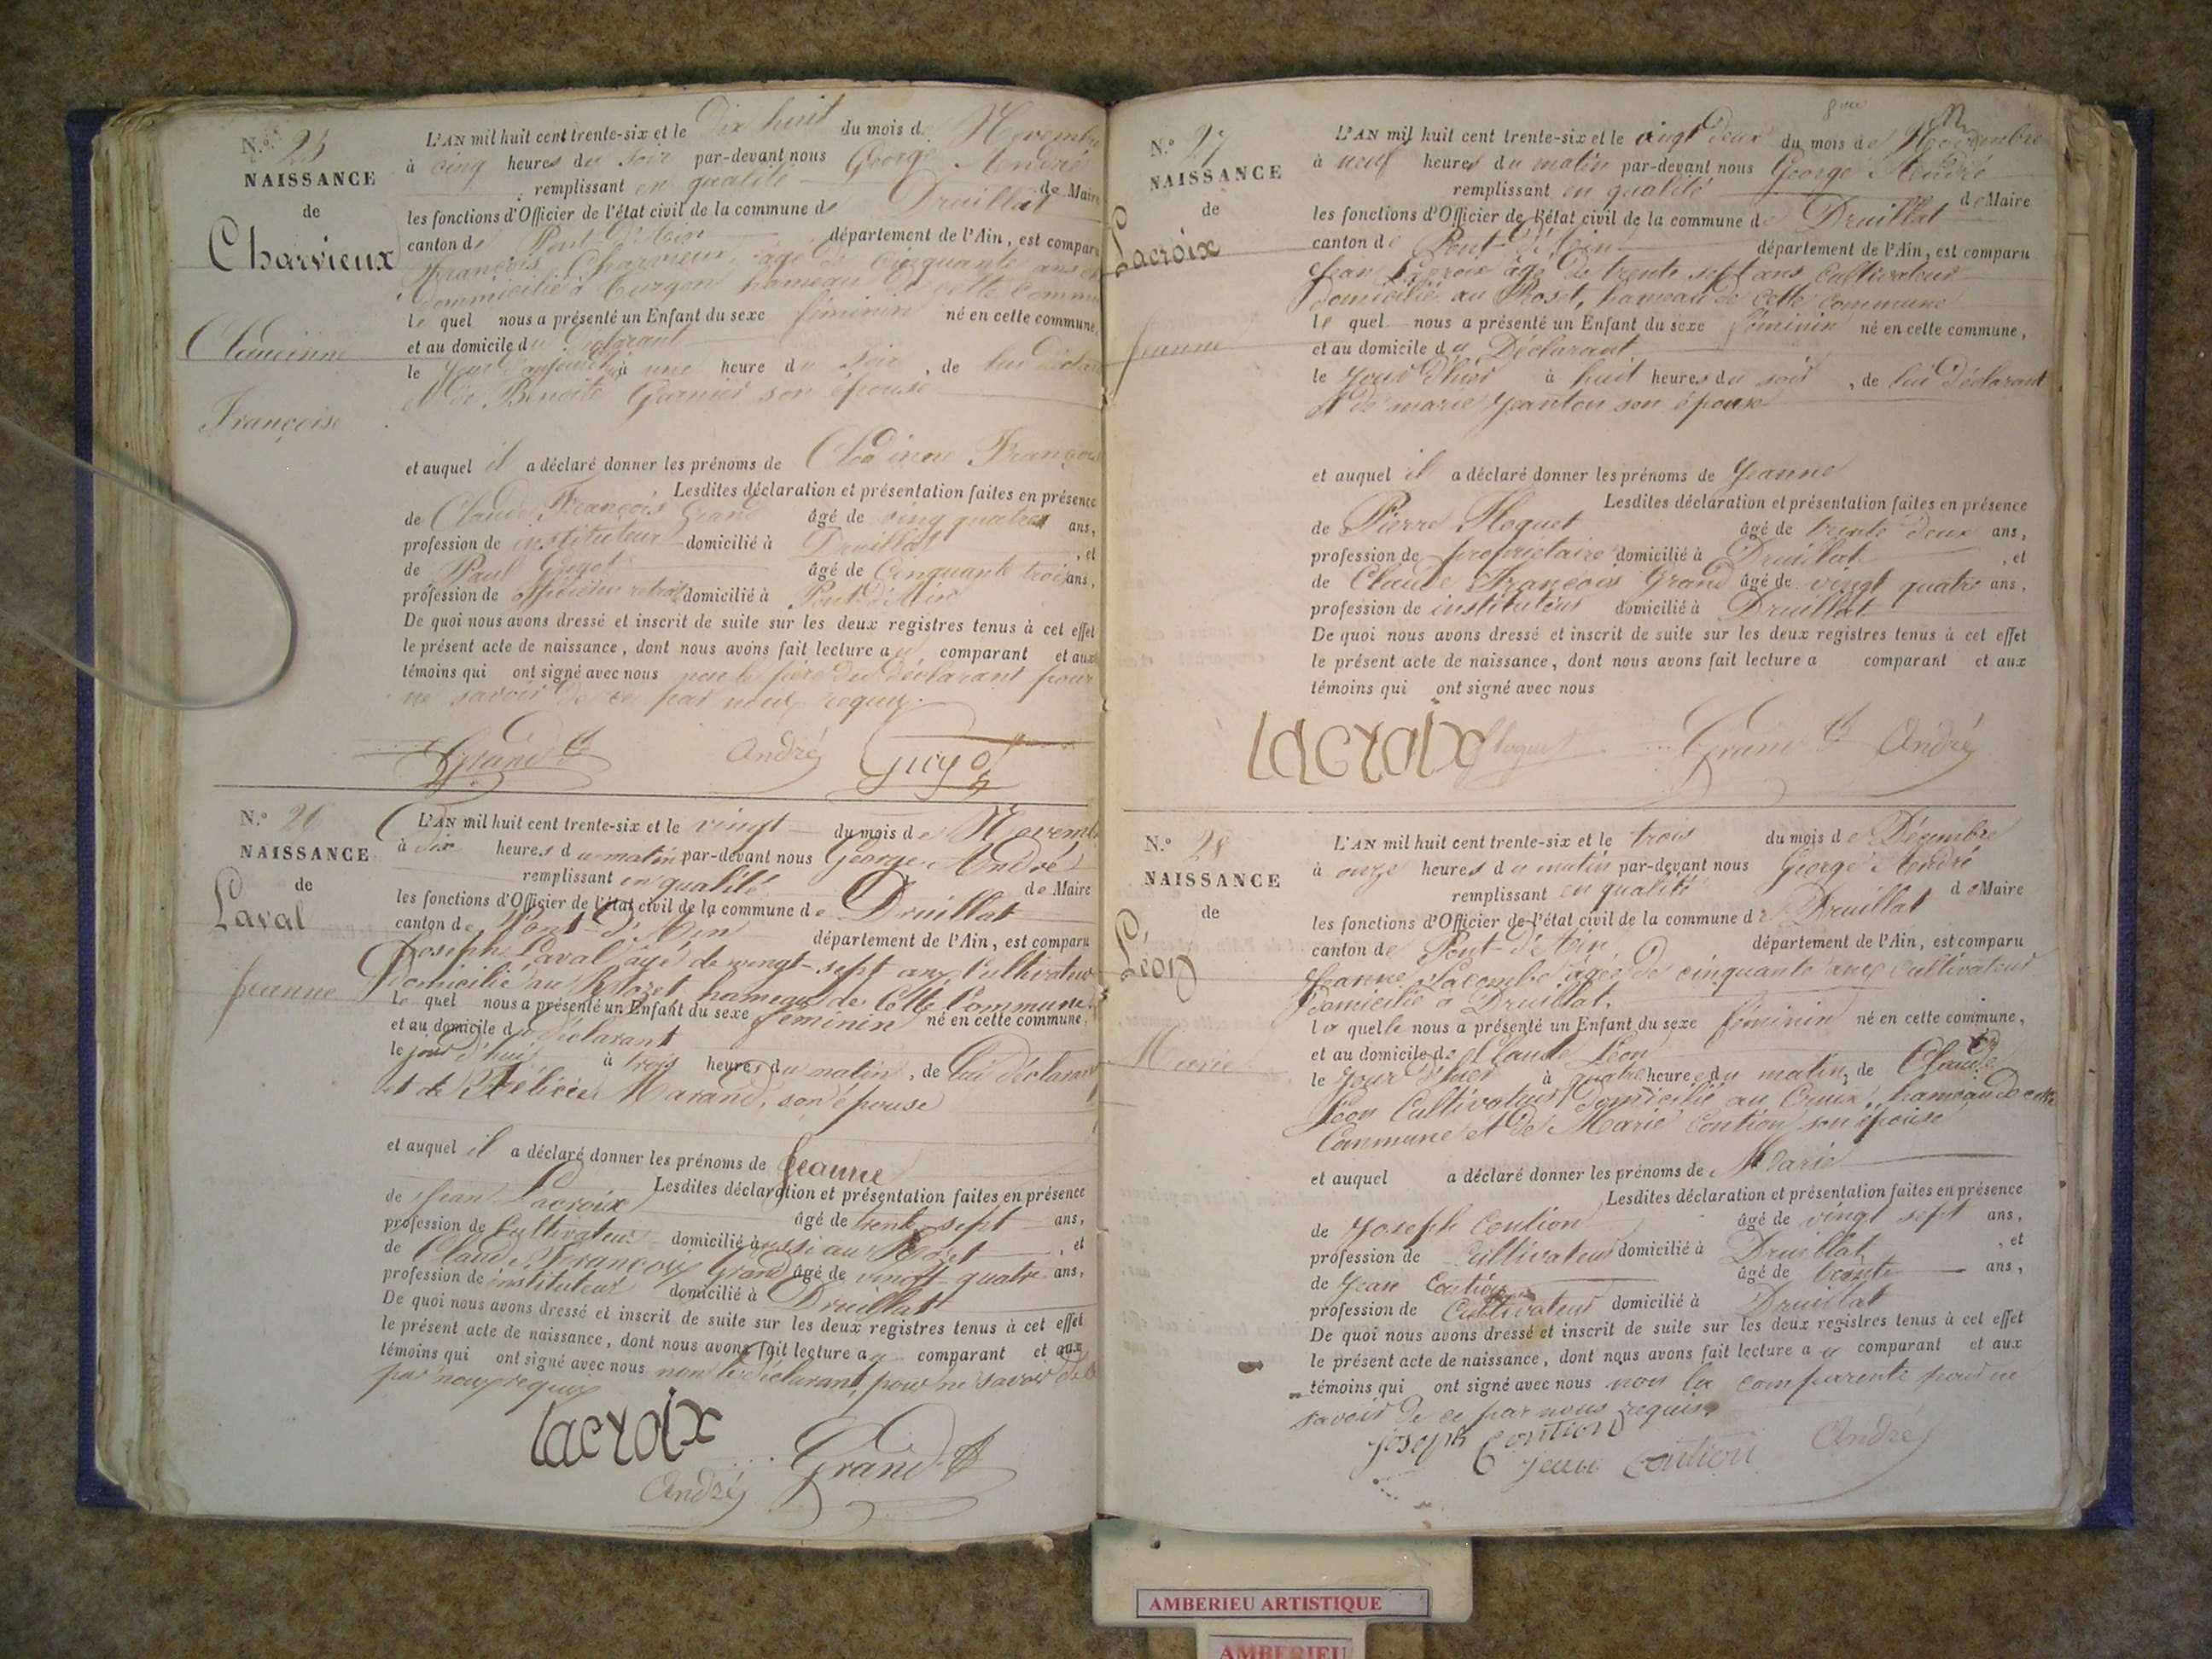 N.° 25
NAISSANCE
de
Charvieux
Claudinne
Françoise
L'AN mil huit cent trente-six et le dix huit du mois de Novembre
à cinq heures du soir par-devant nous George André
remplissant en qualité de Maire
les fonctions d'Officier de l'état civil de la commune de Druillat
canton de Pont-d'Ain département de l'Ain, est comparu
François Charvieux âgé de cinquante ans
domicilié à hameau de cette Commune
le quel nous a présenté un Enfant du sexe féminin né en cette commune,
et au domicile du Déclarant
le Jour d'aujourd'hui à une heure du soir, de lui déclarant
et de Benoite Garnier son épouse
et auquel il a déclaré donner les prénoms de Clodinne Françoise
Lesdites déclaration et présentation faites en présence
de Claude François Grand âgé de vingt quatre ans,
profession de instituteur domicilié à Druillat, et
de Paul Guyot âgé de Cinquante trois ans,
profession de officier retraité domicilié à Pont-d'Ain
De quoi nous avons dressé et inscrit de suite sur les deux registres tenus à cet effet
le présent acte de naissance, dont nous avons fait lecture au comparant et aux
témoins qui ont signé avec nous non le père du déclarant pour
ne savoir de ce par nous requis.
Grand André Guyot
N.° 26
NAISSANCE
de
Laval
Jeanne
L'AN mil huit cent trente-six et le vingt du mois de Novembre
à dix heures du matin par-devant nous George André
remplissant en qualité de Maire
les fonctions d'Officier de l'état civil de la commune de Druillat
canton de Pont-d'Ain département de l'Ain, est comparu
Joseph Laval âgé de vingt-sept ans Cultivateur
domicilié au Rozet hameau de Cette Commune
le quel nous a présenté un Enfant du sexe féminin né en cette commune,
et au domicile du déclarant
le jour d'hui à trois heures du matin, de lui déclarant
et de Félicie Marand, son épouse
et auquel il a déclaré donner les prénoms de Jeanne
Lesdites déclaration et présentation faites en présence
de Jean Lacroix âgé de trente-sept ans,
profession de Cultivateur domicilié aussi au Rozet, et
de Claude François Grand âgé de vingt-quatre ans,
profession de instituteur domicilié à Druillat
De quoi nous avons dressé et inscrit de suite sur les deux registres tenus à cet effet
le présent acte de naissance, dont nous avons fait lecture au comparant et aux
témoins qui ont signé avec nous non le déclarant, pour ne savoir de ce
par nous requis
lacroix
André Grand
N.° 27
NAISSANCE
de
Lacroix
Jeanne
L'AN mil huit cent trente-six et le vingt deux du mois de Novembre
à neuf heures du matin par-devant nous George André
remplissant en qualité de Maire
les fonctions d'Officier de l'état civil de la commune de Druillat
canton de Pont-d'Ain département de l'Ain, est comparu
Jean Lacroix âgé de trente sept ans Cultivateur
domicilié au Roset, hameau de cette commune
le quel nous a présenté un Enfant du sexe féminin né en cette commune,
et au domicile du Déclarant
le Jour d'hier à huit heures du soir, de lui Déclarant
et de marie Jeanton son épouse
et auquel il a déclaré donner les prénoms de Jeanne
Lesdites déclaration et présentation faites en présence
de Pierre Floquet âgé de trente deux ans,
profession de propriétaire domicilié à Druillat, et
de Claude François Grand âgé de vingt quatre ans,
profession de instituteur domicilié à Druillat
De quoi nous avons dressé et inscrit de suite sur les deux registres tenus à cet effet
le présent acte de naissance, dont nous avons fait lecture a comparant et aux
témoins qui ont signé avec nous
lacroix floquet Grand André
N.° 28
NAISSANCE
de
Léon
Marie
L'AN mil huit cent trente-six et le trois du mois de Décembre
à onze heures du matin par-devant nous George André
remplissant en qualité de Maire
les fonctions d'Officier de l'état civil de la commune de Druillat
canton de Pont-d'Ain département de l'Ain, est comparu
Jeanne Lacombe âgée de cinquante ans Cultivateur
domicilié à Druillat.
la quelle nous a présenté un Enfant du sexe féminin né en cette commune,
et au domicile de Claude Léon
le Jour d'hier à quatre heures du matin, de Claude
Léon Cultivateur domicilié au Creux, hameau de cette
Commune et de Marie Contion son épouse
et auquel a déclaré donner les prénoms de Marie
Lesdites déclaration et présentation faites en présence
de Joseph Contion âgé de vingt sept ans,
profession de Cultivateur domicilié à Druillat, et
de Jean Contion âgé de trente ans,
profession de Cultivateur domicilié à Druillat
De quoi nous avons dressé et inscrit de suite sur les deux registres tenus à cet effet
le présent acte de naissance, dont nous avons fait lecture a u comparant et aux
témoins qui ont signé avec nous non la comparente pour ne
savoir de ce par nous requis.
joseph Contion
jean contion André
AMBERIEU ARTISTIQUE
AMBERIEU